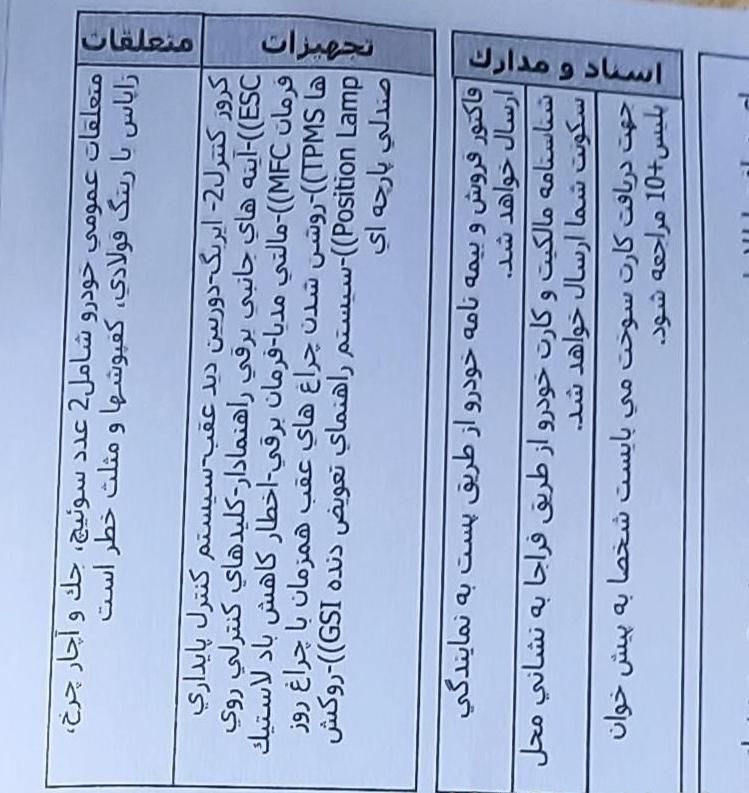 متعلقات
متعلقات عمومي خودرو شامل2 عدد سوئیچ، جك و آچار چرخ،
زاپاس با رینگ فولادي، کفپوشها و مثلث خطر است
تجهیزات
کروز کنترل2- ایربگ-دوربین دید عقب-سیستم کنترل پایداري
ESC))-آینه هاي جانبي برقي راهنمادار-کلیدهاي کنترلي روي
فرمان MFC))-مالتي مدیا-فرمان برقي-اخطار کاهش باد لاستیك
ها TPMS))-روشن شدن چراغ هاي عقب همزمان با چراغ روز
Position Lamp))-سیستم راهنماي تعویض دنده GSI))-روکش
صندلي پارچه اي
اسناد و مدارك
فاکتور فروش و بیمه نامه خودرو از طریق پست به نمایندگي
ارسال خواهد شد.
شناسنامه مالکیت و کارت خودرو از طریق فراجا به نشاني محل
سکونت شما ارسال خواهد شد.
جهت دریافت کارت سوخت مي بایست شخصا به پیش خوان
پلیس+10 مراجعه شود.